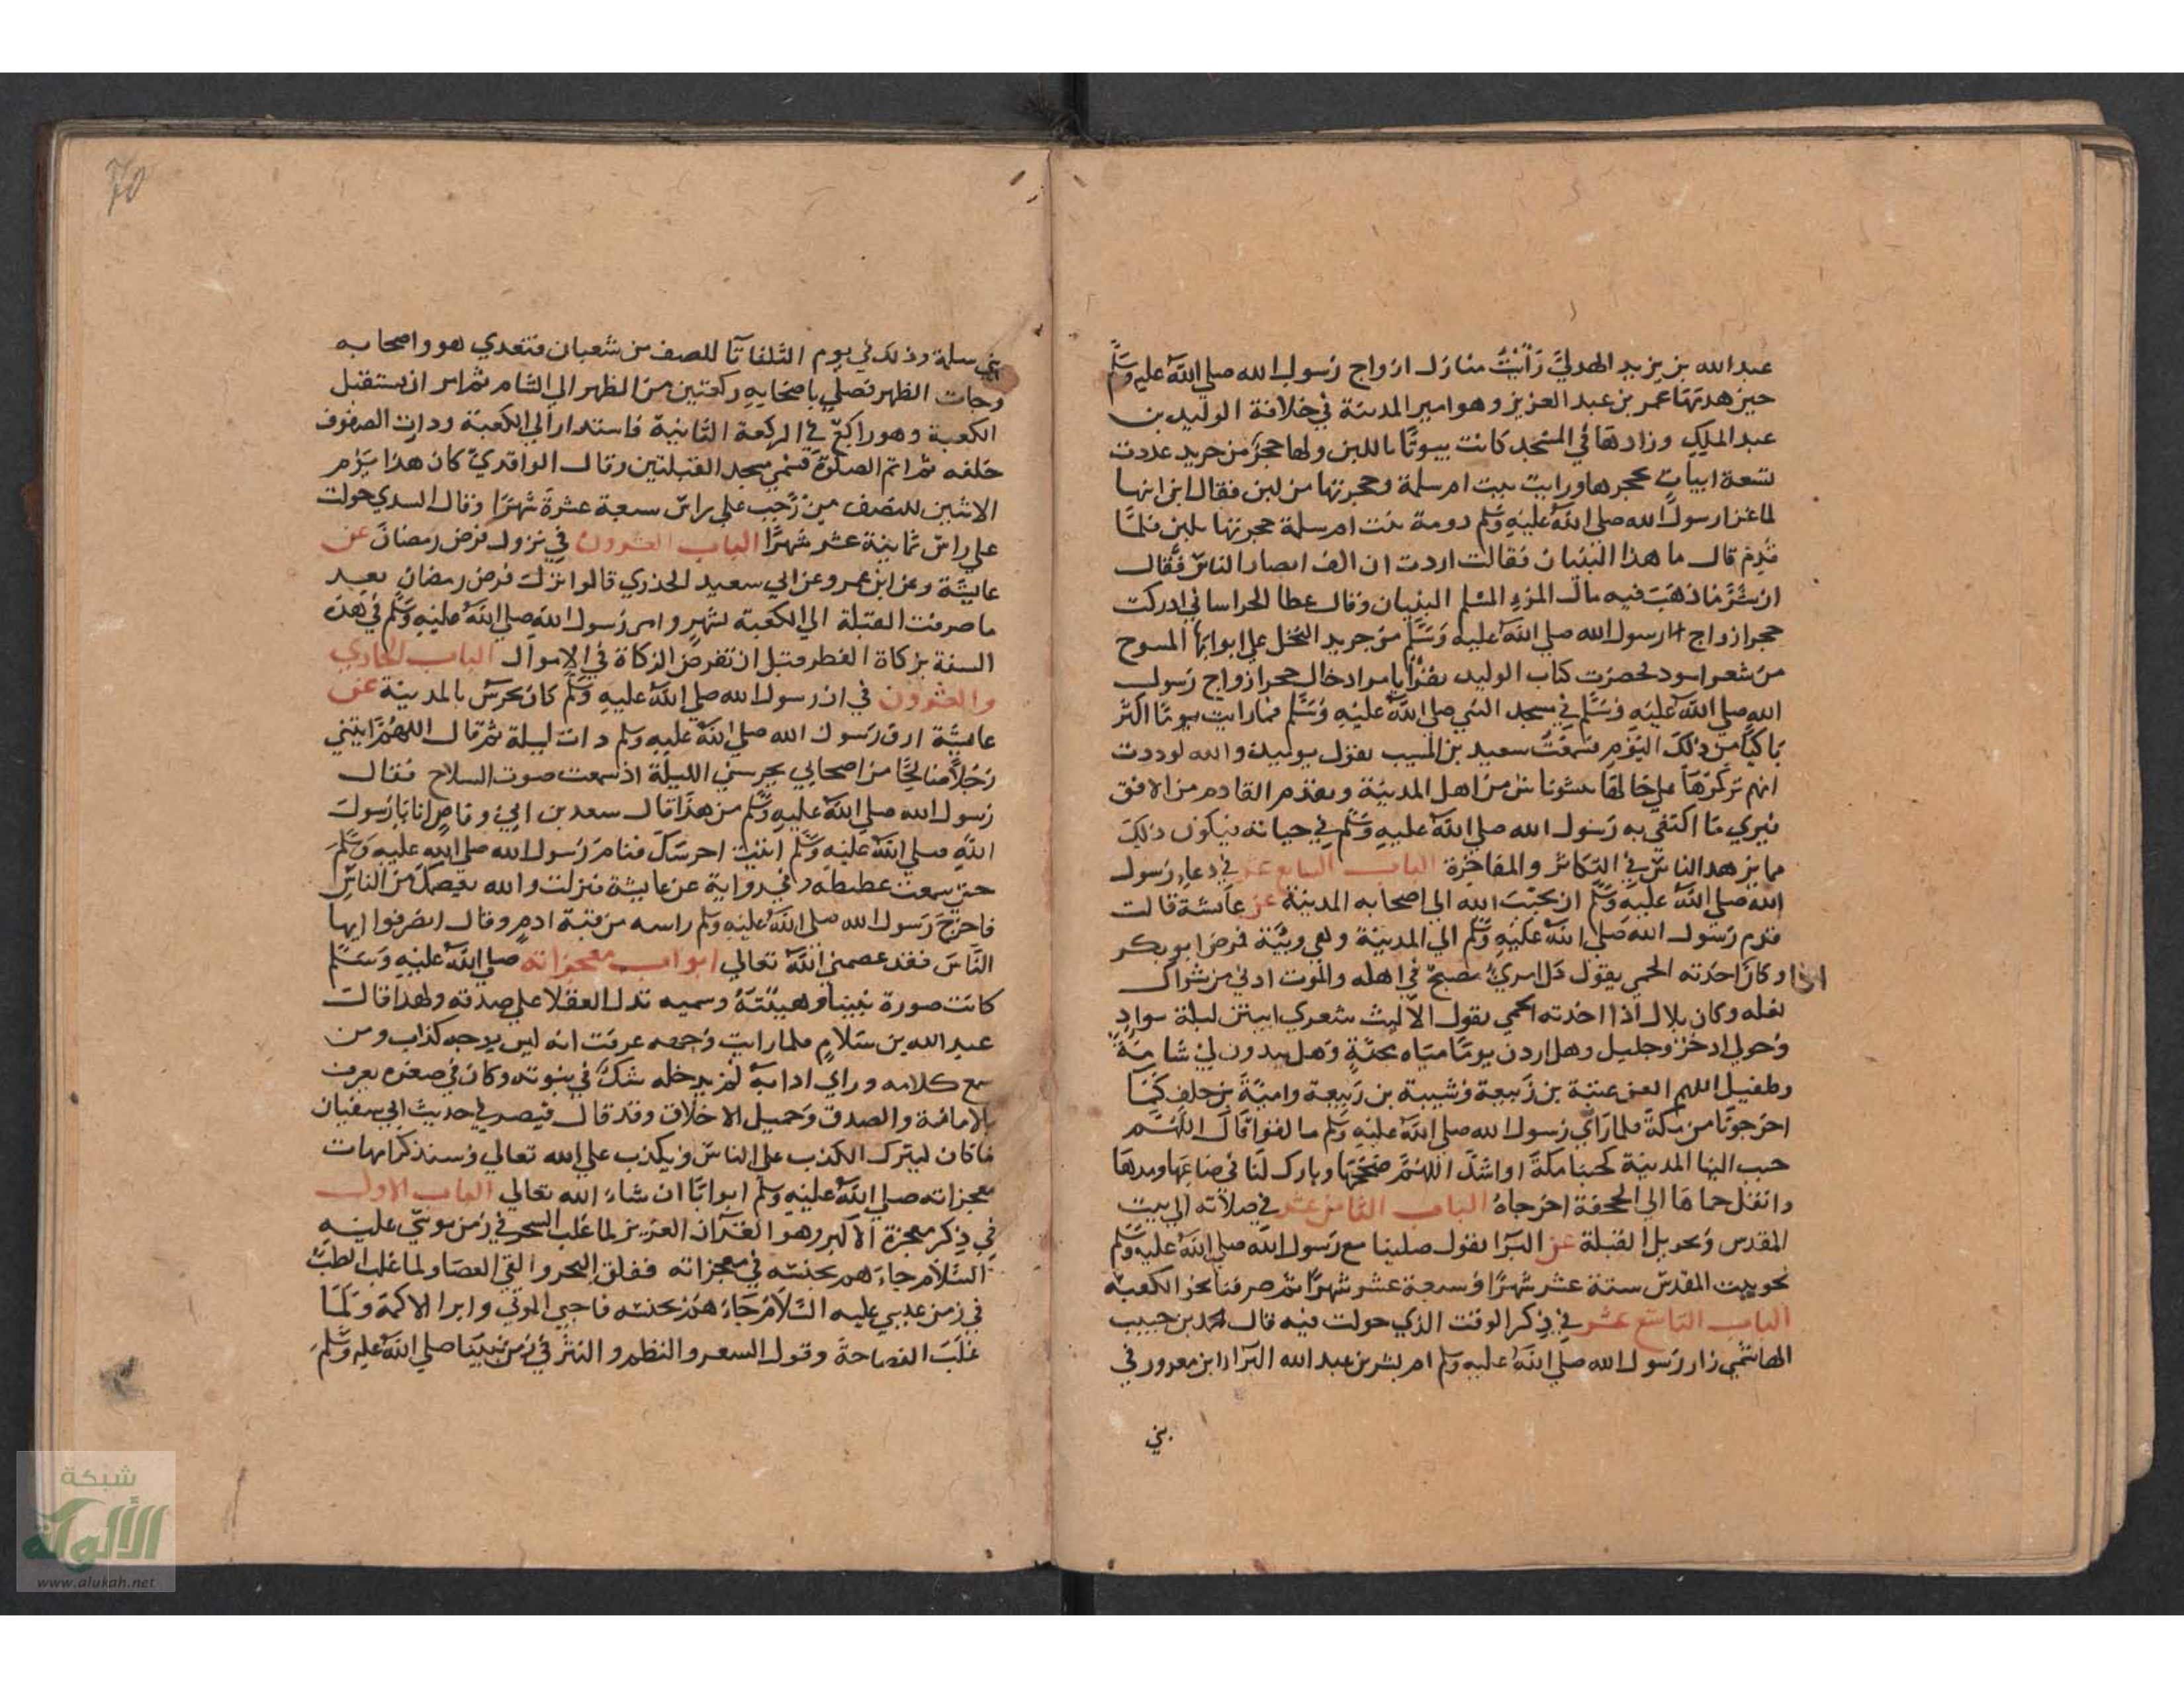 عبد الله بن يزيد الهدلي رَأيْتُ منازل ازواج رَسول الله صلي الله عليه وسلم
حين هدتهَا عمر بن عبد العزيز وهو امير المدينة في خلافة الوليد بن
عبد الملِك وزادهَا في المسْجد كانت بيوتًا باللبن ولها حجرٌ من جريد عددت
تسعة ابيات بحجرها ورايت بيت ام سلمة وحجرتها من لبن فقال ابن ابنها
لما غزا رسول الله صلي الله عليه وسَلم دومة بنت ام سلمة حجرتها بلبن فلمَّا
قدِمَ قال ما هذا البنيان فقالت اردت ان الف ابصار الناس فقال
ان شرَّ مَا ذهَبَ فيه مال المرءِ المسْلم البنيان وقال عطا الخراساني ادركت
حجر ازواج رسول الله صلي الله عليه وسلم من جريد النخل علي ابوابها المسوح
من شعر اسود فحضرت كتاب الوليد يقرأ يامر ادخال حجر ازواج رَسول
الله صلي الله عليه وسلم في مسجد النبي صلي الله عليه وسلم فما رايت يومًا اكثر
بَاكيًا من ذلكَ اليَوم فسَمعْتُ سعيد بن المسيب يقول يوميذ والله لوددت
انهم تركوهَا علي حَالهَا ينشو ناس من اهل المدينة ويقدم القادم من الافق
فيري مَا اكتفي به رَسول الله صلي الله عليه وسلم في حياته فيكون ذلكَ
مما يزهد الناسَ في التكاثر والمفاخرة الباب السابع عشر في دعاءِ رَسول
الله صلي الله عليه وسلم ان يحبّبَ الله الي اصحابه المدينة عن عَائشة قالت
قدم رَسول الله صلي الله عليه وسلم الي المدينة وهي وبيَّة فمرض ابو بكر
اذا وكان احدته الحمي يقول كل امريءٍ مُصَبحٌ في اهله والموت ادني من شراك
نعله وكان بلال اذا اخدته الحمي يقول الا ليت شعري ابيتن ليلة بوادٍ
وَحولي ادخر وجليل وهل اردن يومًا ميَاه مجنَّةٍ وَهل يبدون لي شامَةٌ
وطفيل اللهم العن عتبة بن رَبيعة وَشيبة بن رَبيعة واميَّةَ بن خلف كمَا
اخرجونَا من مكة فلما رَأي رَسول الله صلي الله عليه وسلم ما لقوا قال اللهُمَّ
حبب الينا المدينة كحبنا مكة او اشدّ اللهُمَّ صَحّحْهَا وبارك لنَا في صَاعِهَا ومدهَا
وانقل حماهَا الي الجحفة اخرجاهُ الباب الثامن عشر في صلاته الي بيت
المقدس وتحويل القبلة عن البرا يقول صلينا مع رَسول الله صلي الله عليه وسلم
نحو بيت المقدس ستة عشر شهرًا او سبعة عشر شهرًا ثم صرفنا نحو الكعبة
الباب التاسع عشر في ذِكر الوقت الذي حولت فيه قال محمد بن حبيب
الهاشمي زار رَسول الله صلي الله عليه وسلم ام بشر بن عبد الله البرا ابن معرور في
بني
بني سلمة وذلك في يوم الثلثا للصف من شعبان فتغدي هو واصحابه
وجات الظهر فصلي باصحَابه ركعتين من الظهر الي الشام ثم امر ان يستقبل
الكعبة وهو راكع في الركعة الثانية فاستدار الي الكعبة ودارت الصفوف
خلفه ثم اتم الصلوة فسُمي مسجد القبلتين وقال الواقدي كان هذا يَوْم
الاثنين للنصف من رَجَب علي راس سبعة عشرة شهرًا وقال السدي حولت
علي راس ثمانية عشر شهرًا الباب العشرون في نزول فرض رمضَان عن
عايشة وعن ابن عمر وعن ابي سعيد الخدري قالوا نزلت فرض رمضان بعد
ما صرفت القبلة الي الكعبة بشهرٍ وامر رَسول الله صلي الله عليه وسلم في هذه
السنة بزكاة الفطر قبل ان تفرض الزكاة في الاموال الباب الحادي
والعشرون في ان رسول الله صلي الله عليه وسلم كان يحرس بالمدينة عن
عايشة ارق رَسول الله صلي الله عليه وسلم ذات ليلة ثم قال اللهم ايتني
رَجُلاً صَالحًا من اصحابي يحرسني الليلة اذ سمعت صوت السلاح فقال
رَسول الله صلي الله عليه وسلم من هَذا قال سعد بن ابي وقاص انا يا رَسول
الله صلي الله عليه وسلم اتيت احرسك فنامَ رَسول الله صلي الله عليه وسلم
حتي سمعت غطيطه وفي رواية عن عايشة فنزلت والله يعصمك من الناس
فاخرَجَ رَسول الله صلي الله عليه وسلم راسه من قبة ادمٍ وقال انصرفوا ايها
النَّاسُ فقد عصمني الله تعالي ابواب معجزاته صلي الله عليه وسلم
كانت صورة نبينا وهيئتهُ وسميه تدل العقلا علي صدقه ولهذا قال
عبد الله بن سَلامٍ فلما رايت وَجهه عرفت انه ليس بوجه كذاب ومن
سمع كلامه وراي ادابهُ لم يدخله شكٌ في نبوته وكان في صغره يعرف
بالامانة والصدق وَجميل الاخلاق وقد قال قيصر في حديث ابي سفيان
مَا كان ليترك الكذب علي الناسِ ويكذب علي الله تعالي وَسنذكر امهات
معجزاته صلي الله عليه وسلم ابوابًا ان شاءَ الله تعالي الباب الاول
في ذِكر معجزة الاكبر وهو القرآن العزيز لما غلب السحر في زمن موسي عليه
السَّلام جاءَهم بجنسه في معجزاته ففلق البحر والقي العصَا ولما غلب الطبُّ
في زمن عيسي عليه السَّلام جَاءَهُم بجنسه فاحيي الموتي وابرا الاكمهَ وَلمَّا
غَلَبَ الفصاحةَ وقول السعر والنظم والنثر في زمن نبيّنَا صلي الله عليه وسلم
70
شبكة
الألوكة
www.alukah.net